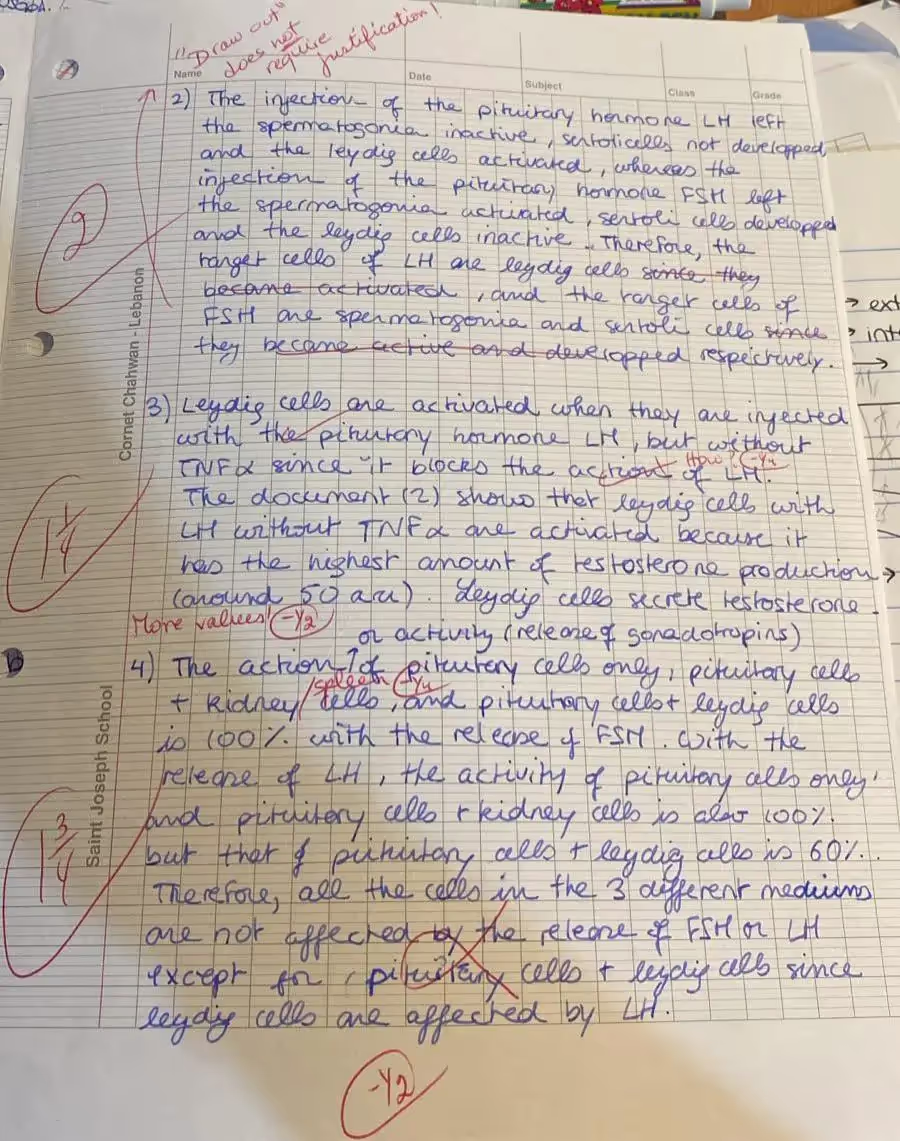 "Draw out"
does not
require
justification!
Name
Date
Subject
Class
Grade
2) The injection of the pituitary hormone LH left
the spermatogonia inactive, sertolicells not developped,
and the leydig cells activated, whereas the
injection of the pituitary hormone FSH left
the spermatogonia activated, sertoli cells developped
and the leydig cells inactive. Therefore, the
target cells of LH are leydig cells since they
became activated, and the target cells of
FSH are spermatogonia and sertoli cells since
they became active and developped respectively.
2
→ ext
→ int
→
3) Leydig cells are activated when they are injected
with the pituitary hormone LH, but without
TNFα since it blocks the action of LH.
How? -1/4
The document (2) shows that leydig cell with
LH without TNFα are activated because it
has the highest amount of testosterone production
(around 50 a.u). Leydig cells secrete testosterone.
1 1/4
More values! -1/2
or activity (release of gonadotropins)
4) The action ↑ of pituitary cells only, pituitary cells
spleen -1/4
+ kidney / cells, and pituitary cells + leydig cells
is 100% with the release of FSH. With the
release of LH, the activity of pituitary cells only,
and pituitary cells + kidney cells is also 100%
but that of pituitary cells + leydig cells is 60%.
Therefore, all the cells in the 3 different mediums
are not affected by the release of FSH or LH
except for pituitary cells + leydig cells since
leydig cells are affected by LH.
1 3/4
-1/2
Cornet Chahwan - Lebanon
Saint Joseph School